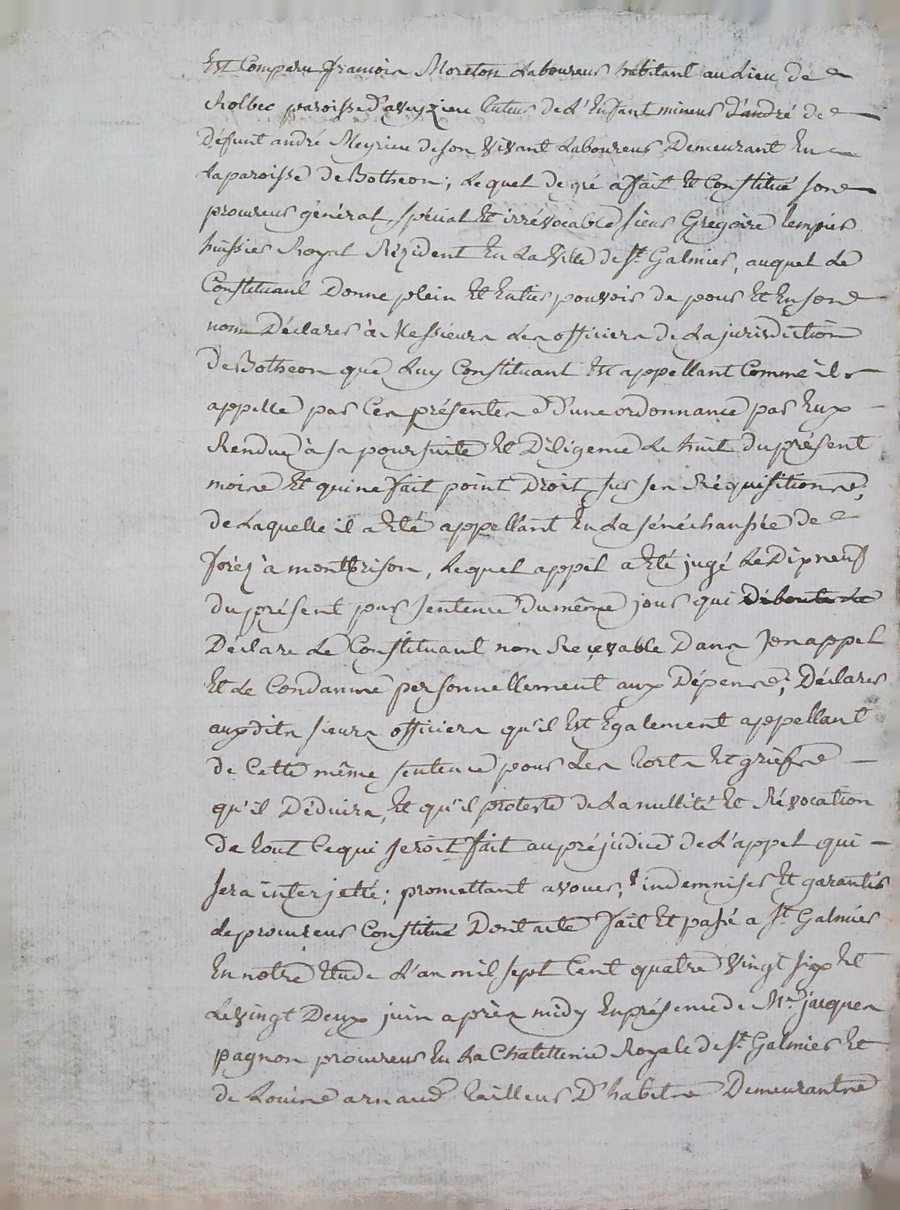 Est Comparu francois Moreton Laboureur habitant au Lieu de
Rolbec paroisse d'aveyzieu tuteur de L'Enfant mineur d'andré de
Défunt andré Meyrieu de son vivant Laboureur Demeurant En
La paroisse de Botheon; Lequel de gré a fait Et Constitué son
procureur général spécial Et irrévocable sieur Grégoire
huissier Royal Rézident En La ville de St. Galmier, auquel Le
Constituant Donne plein Et Entier pouvoir de pour Et En son
nom Déclarer à Messieurs Les officiers de La jurisdiction
de Botheon que Luy Constituant Est appellant Comme il
appelle par Ces présentes d'une ordonnance par Eux
Rendue à sa poursuite Et Diligence Le huit du présent
mois Et qui ne fait point Droit sur ses Réquisitions,
de Laquelle il a Eté appellant En La sénéchaussée de
forez a montbrison, Lequel appel a Eté jugé Le Dix neuf
du présent par sentence du même jour qui Déboute Le
Déclare Le Constituant non Recevable Dans son appel
Et Le Condamne personnellement aux Dépens; Déclarer
auxdits sieurs officiers qu'il Est Egalement appellant
de Cette même sentence pour Les torts Et griefs
qu'il Déduira, Et qu'il proteste de La nullité Et Révocation
de tout Ce qui seroit fait au préjudice de L'appel qui
sera interjetté; promettant avouer, indemniser Et garantir
Le procureur Constitué Dont acte fait Et passé a St. Galmier
En notre Etude L'an mil sept Cent quatre vingt six Et
Le vingt Deux juin après midy En présence de Me. jacques
pagnon procureur En La Chatellenie Royale de St. Galmier Et
de Louis arnaud tailleur D'habits Demeurants